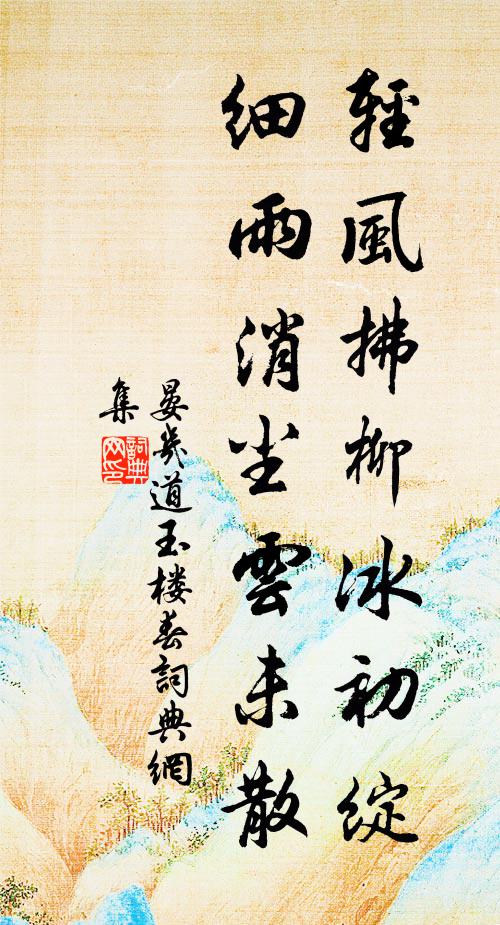 輕風拂柳冰初綻
細雨消尘雲未散
晏幾道玉楼春詞典網
集
詞典網印